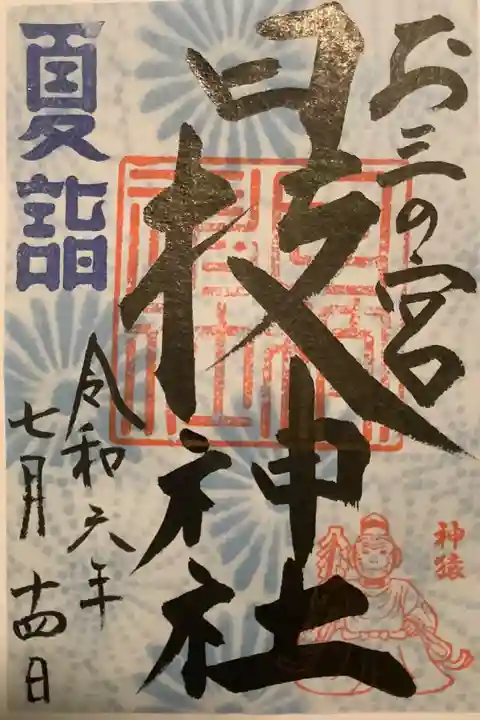 お三の宮
日枝神社
夏詣
令和六年
七月十四日
神猿